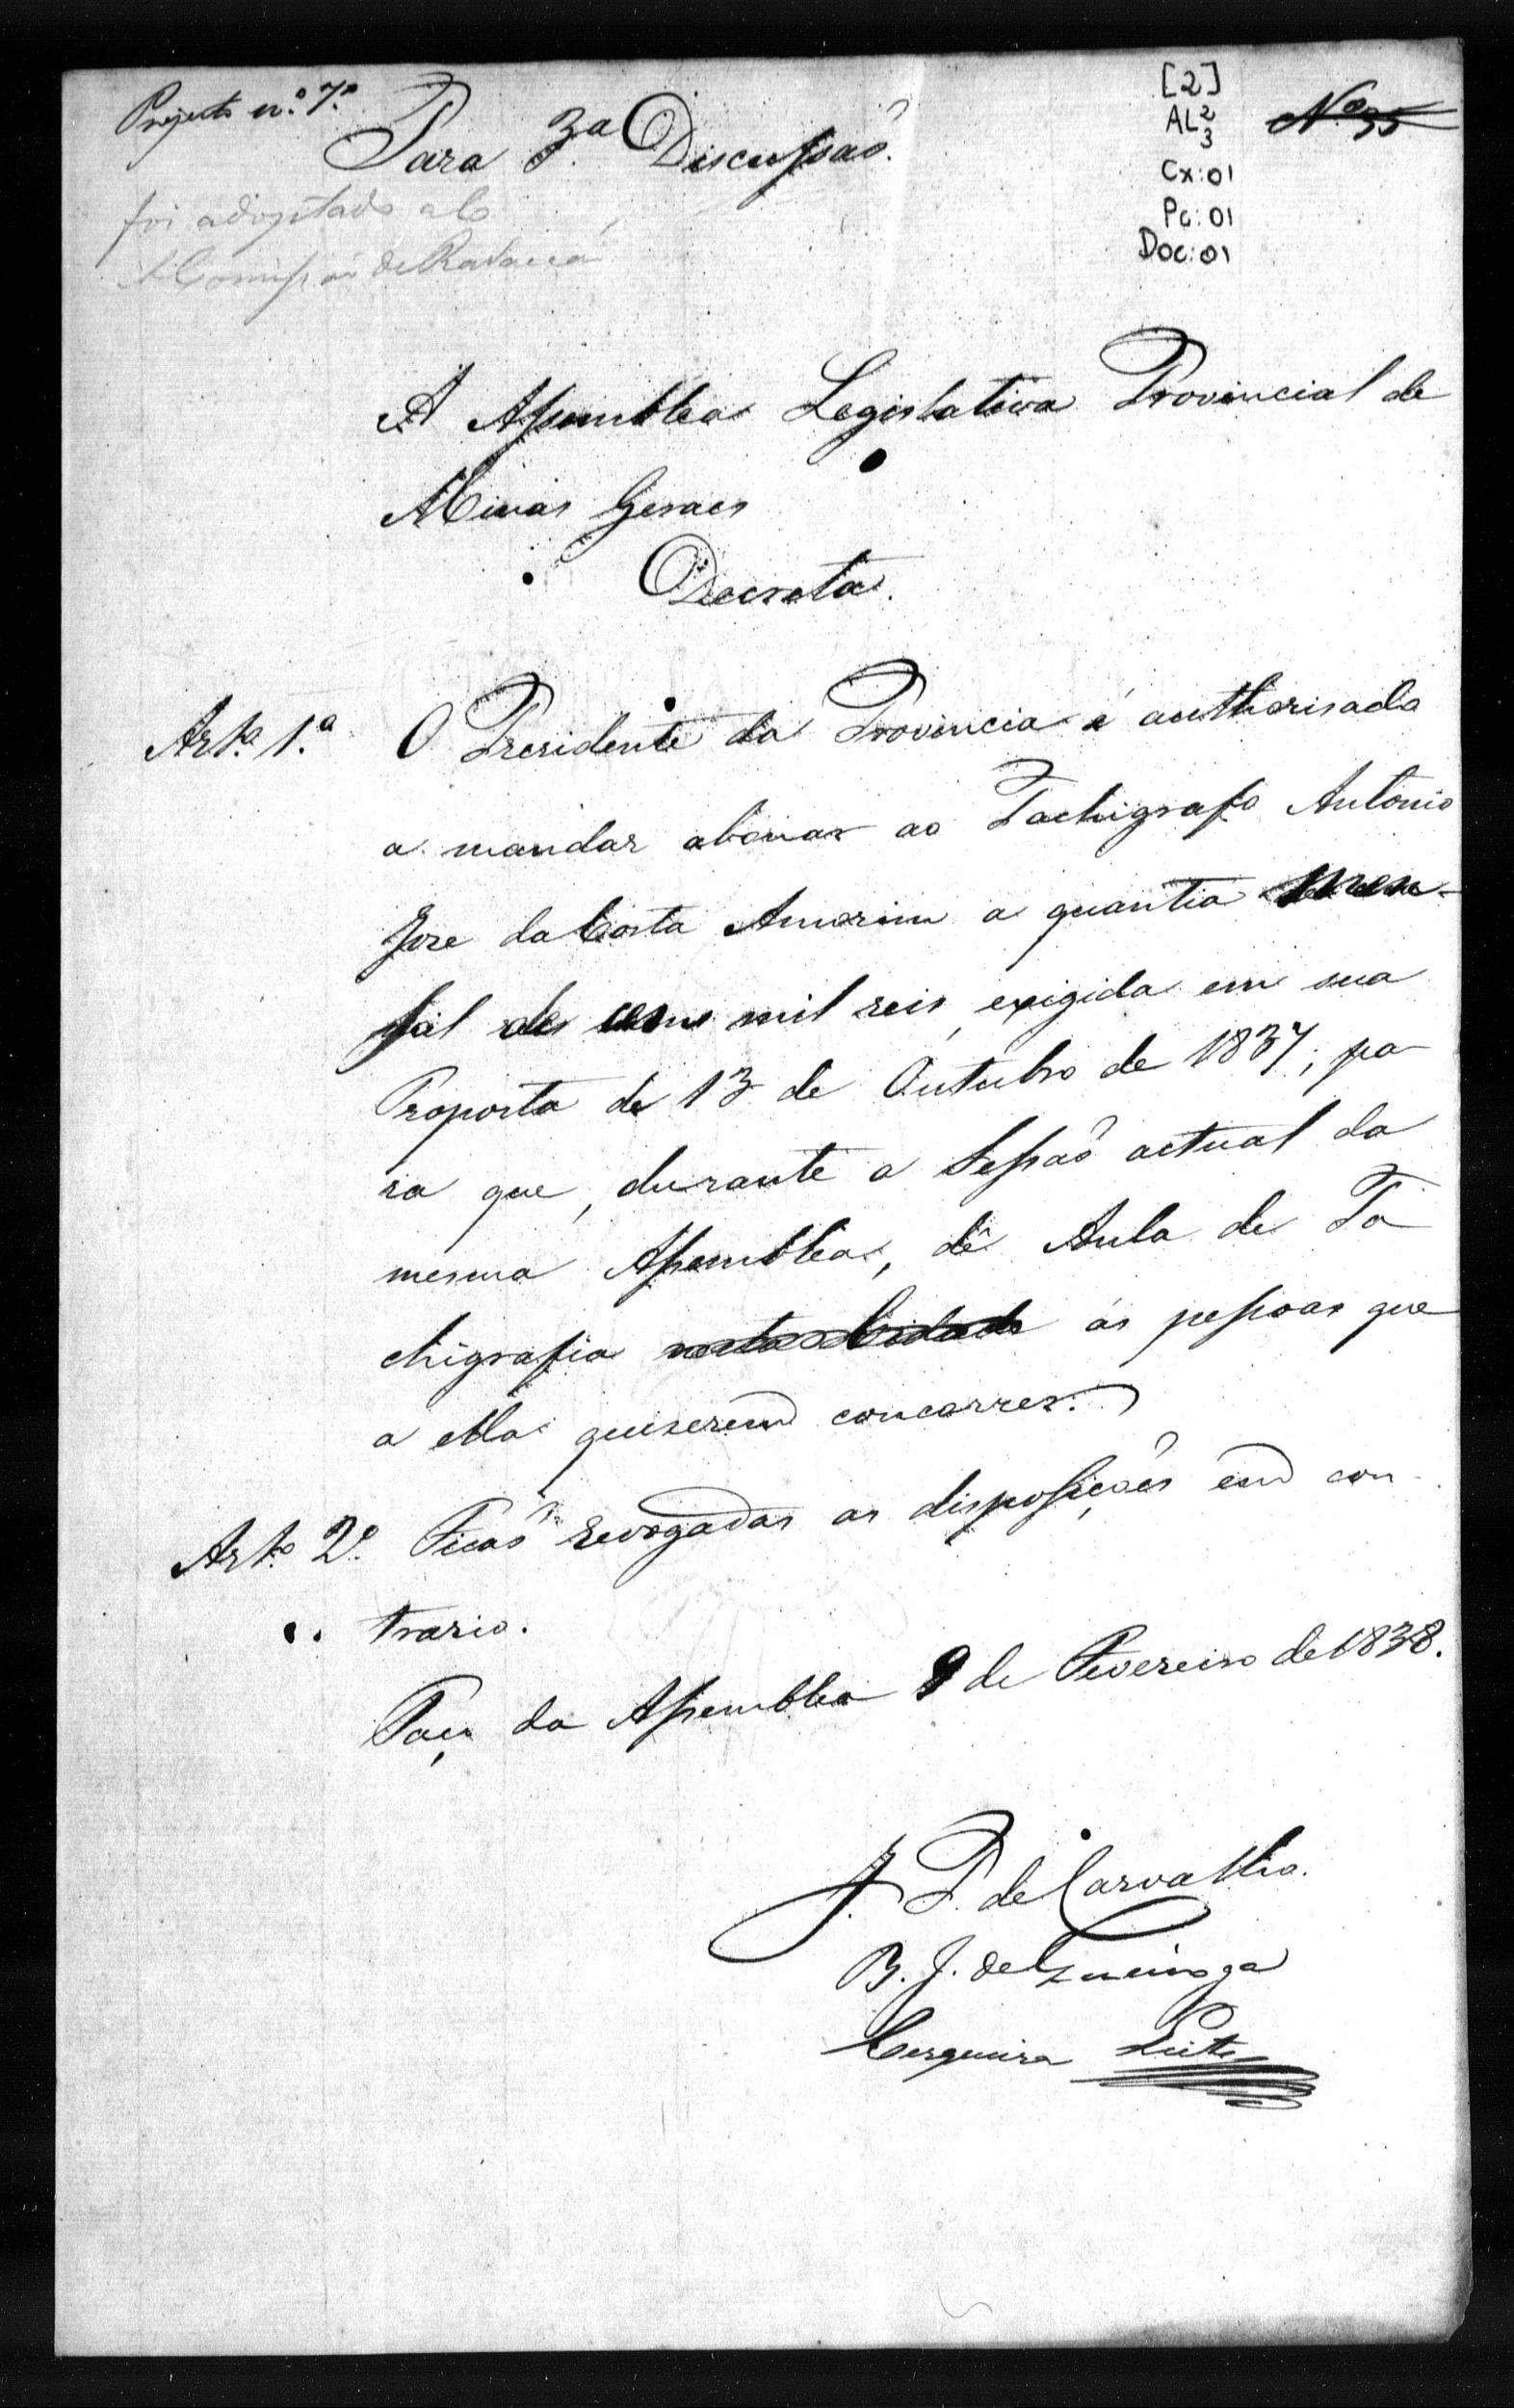 Projecto n.º 7.º
Para 3.ª Discussaõ.
[2]
AL 2/3
Cx: 01
Pc: 01
Doc: 01
Nº 35
foi adoptado
Comissaõ de Redacçaõ
A Assemblea Legislativa Provincial de
Minas Geraes
Decreta.
Art.º 1.º O Presidente da Provincia é authorisado
a mandar abonar ao Tachigrafo Antonio
Jose da Costa Amorim a quantia men-
sal de cem mil reis, exigida em sua
Proposta de 13 de Outubro de 1837, pa-
ra que, durante a Sessaõ actual da
mesma Assemblea, dê Aula de Ta-
chigrafia nesta Cidade ás pessoas que
a ella quiserem concorrer.
Art.º 2.º Ficaõ revogadas as disposiçoẽs em con-
trario.
Paço da Assemblea 9 de Fevereiro de 1838.
J. P. de Carvalho.
B. J. de
Cerqueira Leite